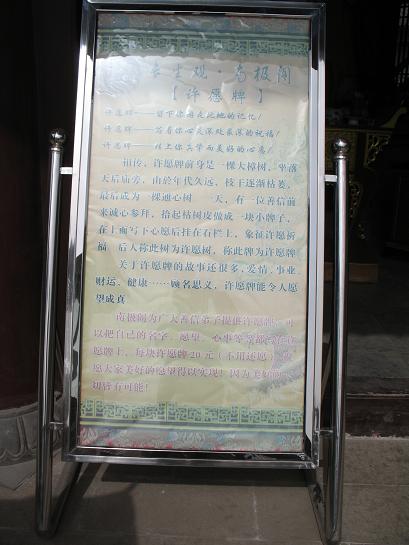 长生观·南极阁
【许愿牌】
许愿牌——留下你游走此地的记忆！
许愿牌——写着你心灵深处最深的祝福！
许愿牌——挂上你共学而美好的心意！
相传，许愿牌前身是一棵大樟树，坐落
天后庙旁，由於年代久远，枝干逐渐枯萎，
最后成为一棵通心树 一天，有一位善信前
来诚心参拜，拾起枯树皮做成一块小牌子，
在上面写下心愿后挂在石栏上，象征许愿祈
福 后人称此树为许愿树，称此牌为许愿牌
关于许愿牌的故事还很多，爱情、事业、
财运、健康……顾名思义，许愿牌能令人愿
望成真
南极阁为广大善信弟子提供许愿牌，可
以把自己的名字、愿望、心事等等
愿牌上，每块许愿牌20元（不用还愿）
愿大家美好的愿望得以实现！因为美好
切皆有可能！